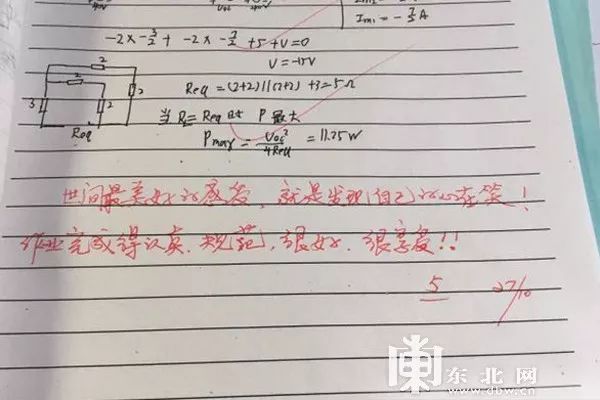 Im1 = -7/2 A
-2×-3/2 + -2×-7/2 +5+V=0
V=-15V
2
2
2
2
3
Req
Req = (2+2)||(2+2) +3=5Ω
当 RL=Req时 P最大
Pmax = Voc²/4Req = 11.25W
世间最美好的感受,就是发现自己的心在笑!
作业完成得认真、规范,很好、很享受!!
5 27/10
东北网
www.dbw.cn